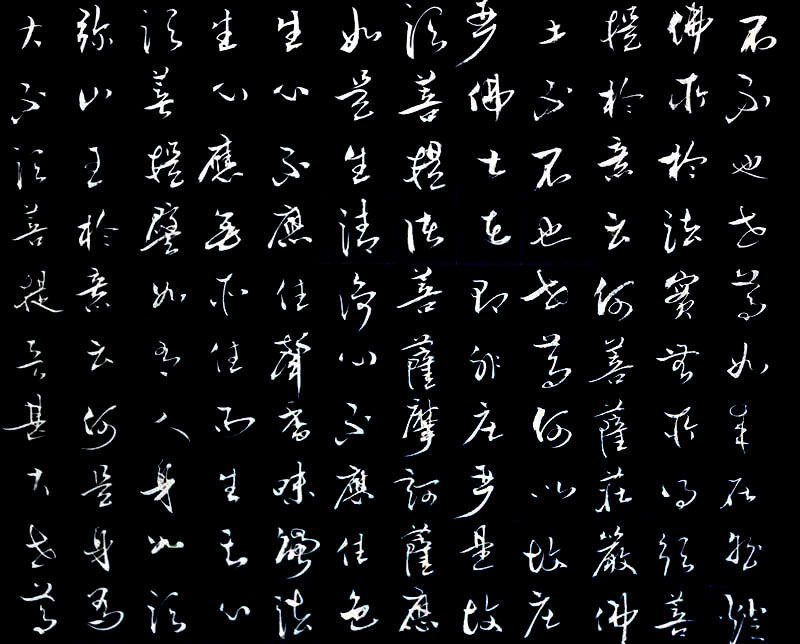 不不也世尊如來在然燈
佛所於法實無所得須菩
提於意云何菩薩莊嚴佛
土不不也世尊何以故莊
嚴佛土者即非莊嚴是故
須菩提諸菩薩摩訶薩應
如是生清淨心不應住色
生心不應住聲香味觸法
生心應無所住而生其心
須菩提譬如有人身如須
彌山王於意云何是身為
大不須菩提言甚大世尊